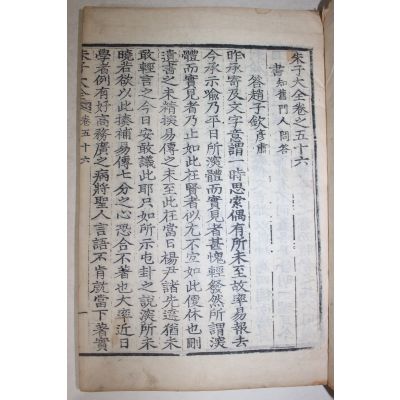 朱子大全卷之五十六
書 知舊門人問答
答趙子欽 彦肅
昨承寄及文字意謂一時思索偶有所未至故率易報去
今承示喩乃平日所深體而實見者甚愧輕發然所謂深
體而實見者乃止如此在賢者似尤不宜如此便休也
遺書之未精擇易傳之未至此在當日楊尹諸先達猶未
敢輕言之今日安敢議此耶只如所示屯卦之說深所未
曉若欲以此揍補易傳七分之心恐合不著也大率近日
學者例有好高務廣之病將聖人言語不肯就當下著實
朱子大全 卷五十六 一